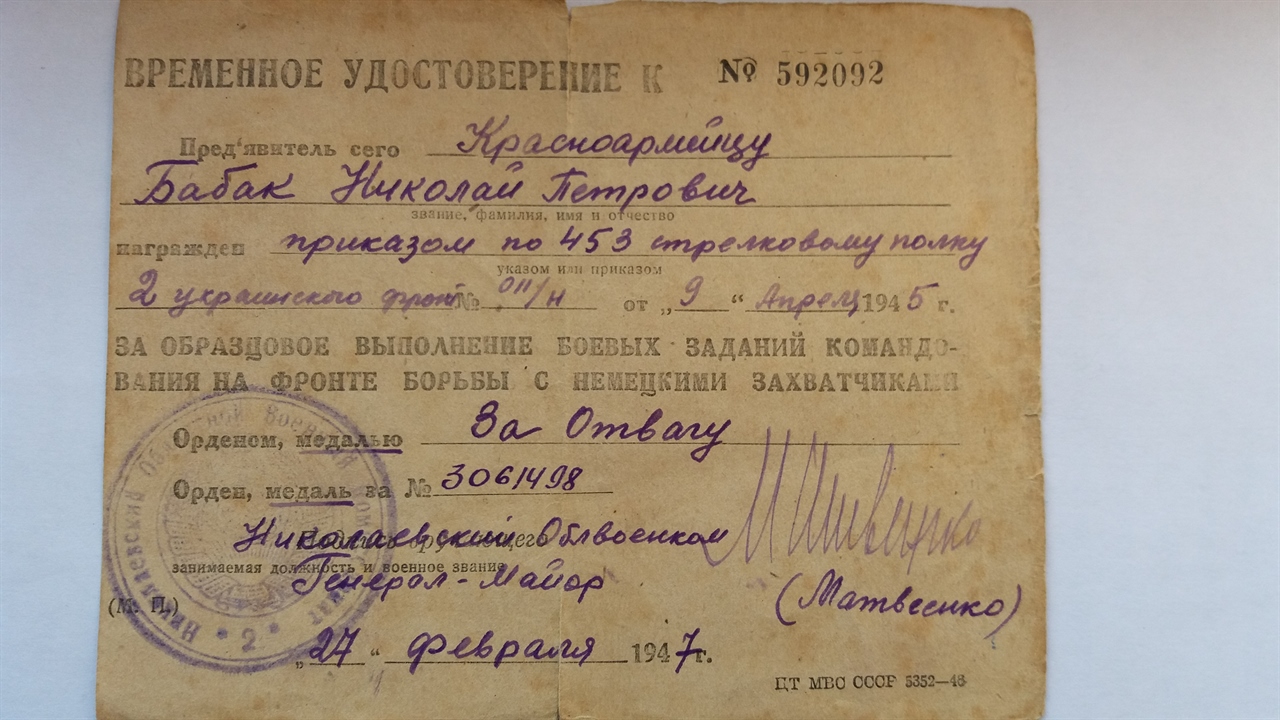 ВРЕМЕННОЕ УДОСТОВЕРЕНИЕ К № 592092
Пред'явитель сего Красноармейцу
Бабак Николай Петрович
звание, фамилия, имя и отчество
награжден приказом по 453 стрелковому полку
указом или приказом
2 украинского фронт № 011/н от „9“ Апреля 1945 г.
ЗА ОБРАЗЦОВОЕ ВЫПОЛНЕНИЕ БОЕВЫХ ЗАДАНИЙ КОМАНДО-
ВАНИЯ НА ФРОНТЕ БОРЬБЫ С НЕМЕЦКИМИ ЗАХВАТЧИКАМИ
Орденом, медалью За Отвагу
Орден, медаль за № 3061498
Николаевский Облвоенком
Подпись вручающего
занимаемая должность и военное звание
Генерал-Майор
(М. П.) (Матвеенко)
„27“ февраля 1947 г.
ЦТ МВС СССР 5352—46
Николаевский Областной Военный Комиссариат
* 2 *